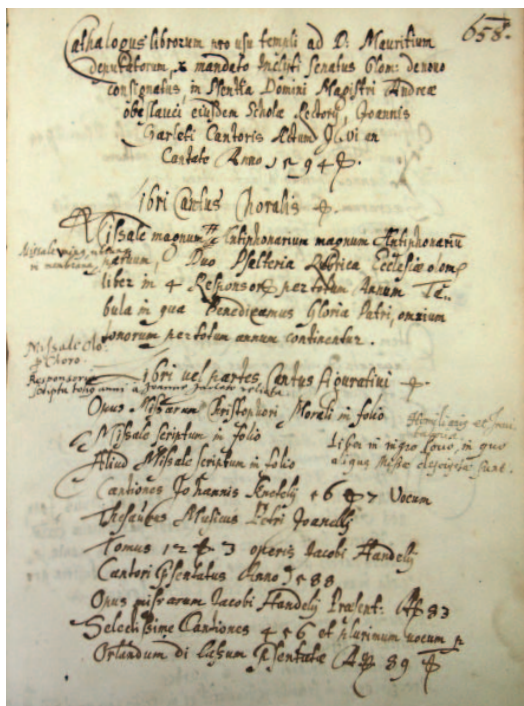 658.
Cathalogus librorum pro usu templi ad D: Mauritium
deputatorum, ex mandato Incliti Senatus Olom: denuo
consignatus, in Domini Magistri Andreae
eiusdem Scholae Rectoris, Joannis
Cantoris Actum
Cantate Anno 1594
ibri Cantus Choralis
Missale magnum Antiphonarium magnum Antiphonariu
Duo Psalteria Rubrica Ecclesiae olom
liber in 4 Responsor per totum Annum Ta-
bula in qua Benedicamus Gloria Patri, omnium
tonorum per totum annum continentur.
Missale
in membrana
Missale Olo
Choro.
Responsoria
scripta totius anni a
ibri vel partes Cantus figurativi
Opus Missarum Christophori Morali in folio
Missale scriptum in folio
Aliud Missale scriptum in folio
et
Liber in nigro in quo
aliquae Missae descriptae sunt.
Cantiones Johannis Knefelij 5 6 & 7 Vocum
Thesaurus Musicus Petri Joanellj
Tomus 1 2 & 3 operis Jacobi Handelij
Cantori psentatus Anno 1588
Opus missarum Jacobi Handelij Praesent: A 83
Selectissime Cantiones 4 5 6 et plurimum vocum p
Orlandum di Lasum psentatae A 89